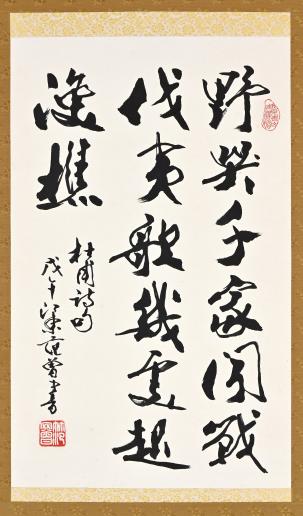 野哭千家聞戰
伐夷歌幾處起
漁樵
杜甫詩句
戊午江東范曾書